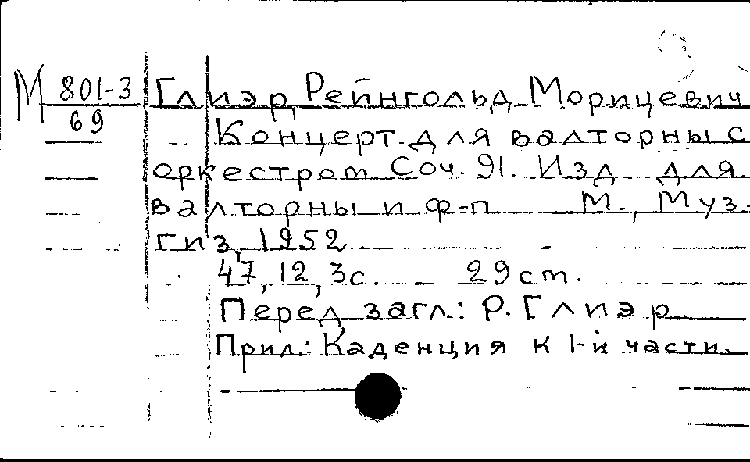 М 801-3 Глиэр, Рейнгольд Морицевич
69
Концерт для валторны с
оркестром Соч. 91. Изд. для
валторны и ф-п М., Муз-
гиз, 1952
47, 12, 3с. 29 ст.
Перед загл.: Р. Глиэр
Прил.: Каденция к 1-й части.